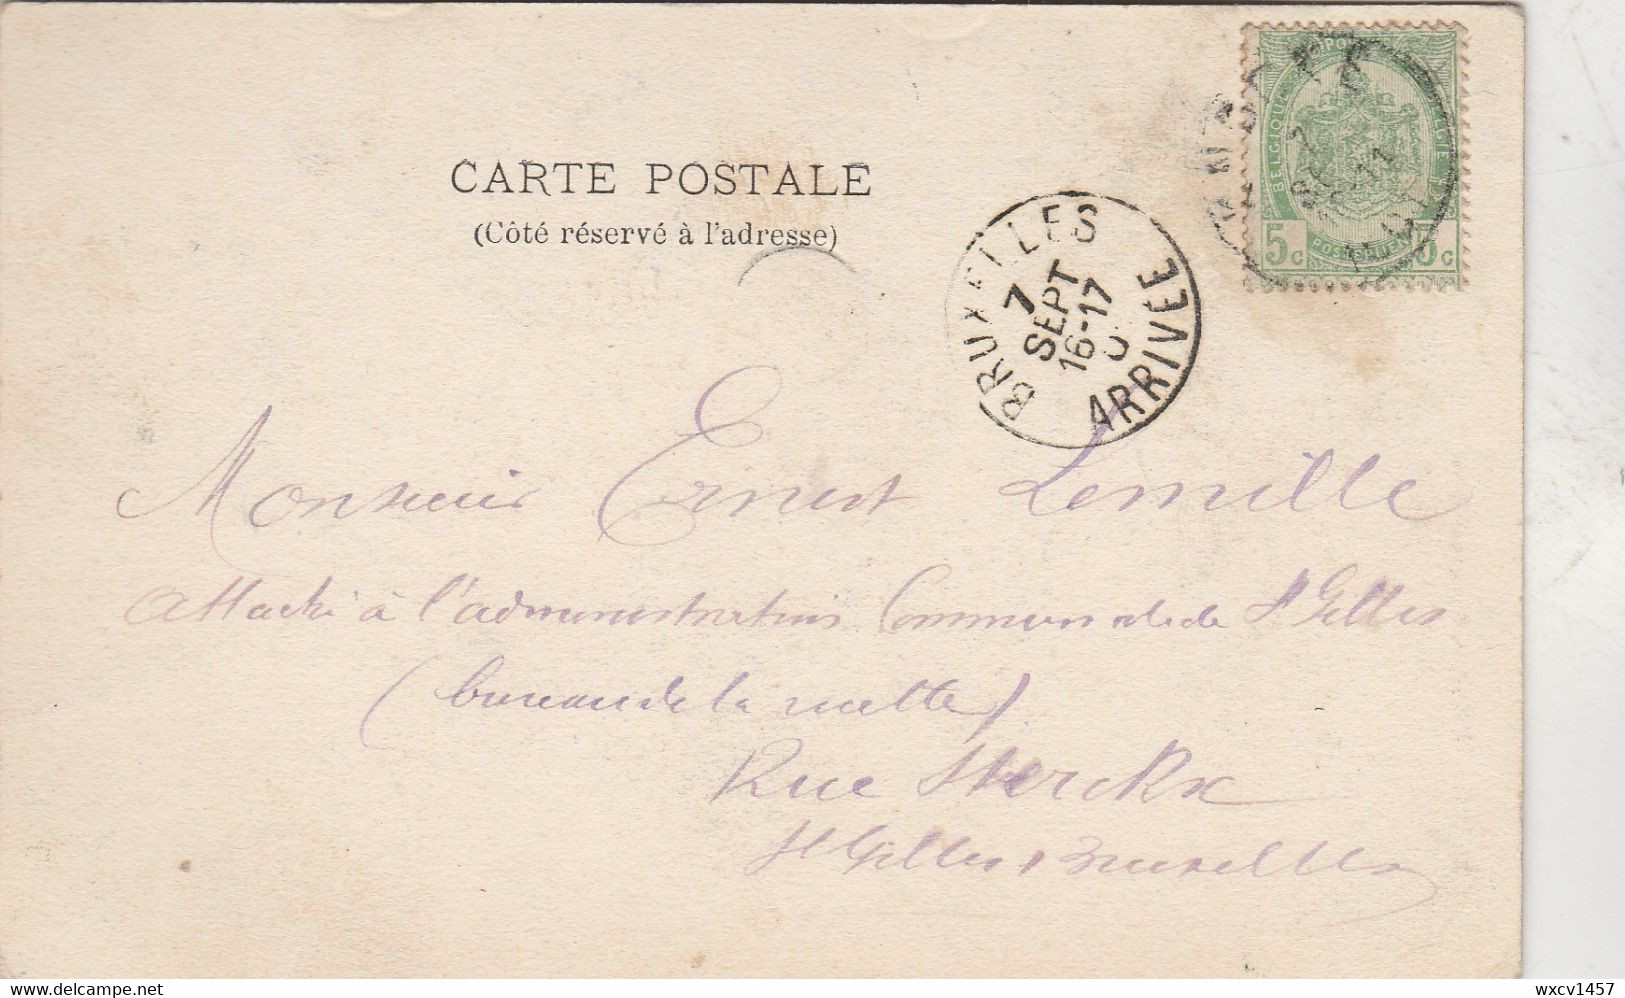 CARTE POSTALE
(Côté réservé à l'adresse)
BELGIQUE
5c 5c
BRUXELLES
7
SEPT
16-17
ARRIVÉE
Monsieur Ernest Lemille
attaché à l'administration Communale de St Gilles
(bureau de la recette)
Rue Sterckx
St Gilles Bruxelles
www.delcampe.net
wxcv1457